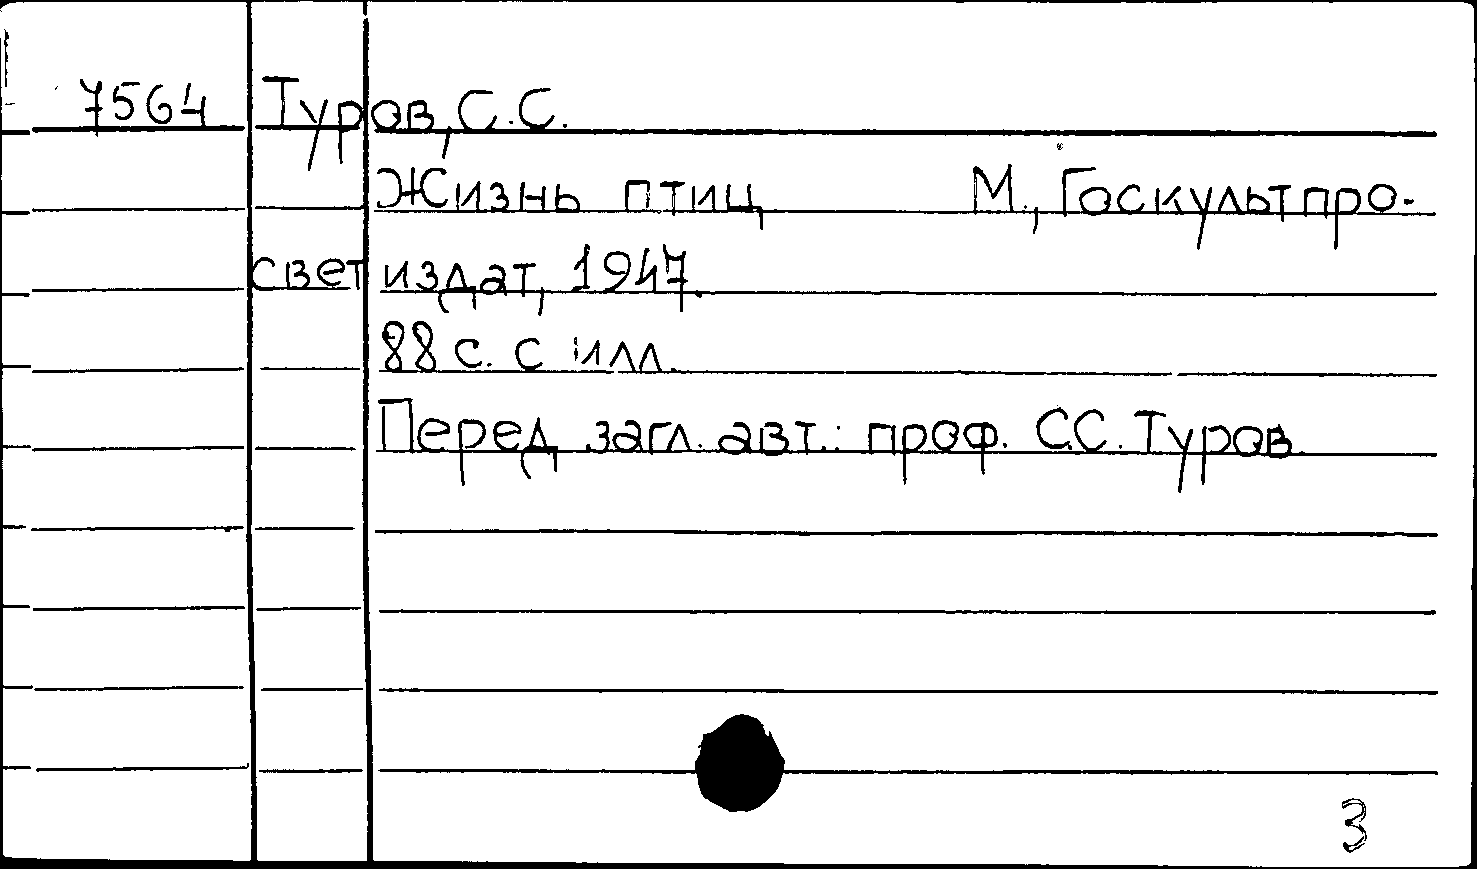 7564 Туров, С.С.
Жизнь птиц М., Госкультпро-
светиздат, 1947.
88 с. с илл.
Перед загл. авт.: проф. С.С. Туров.
3